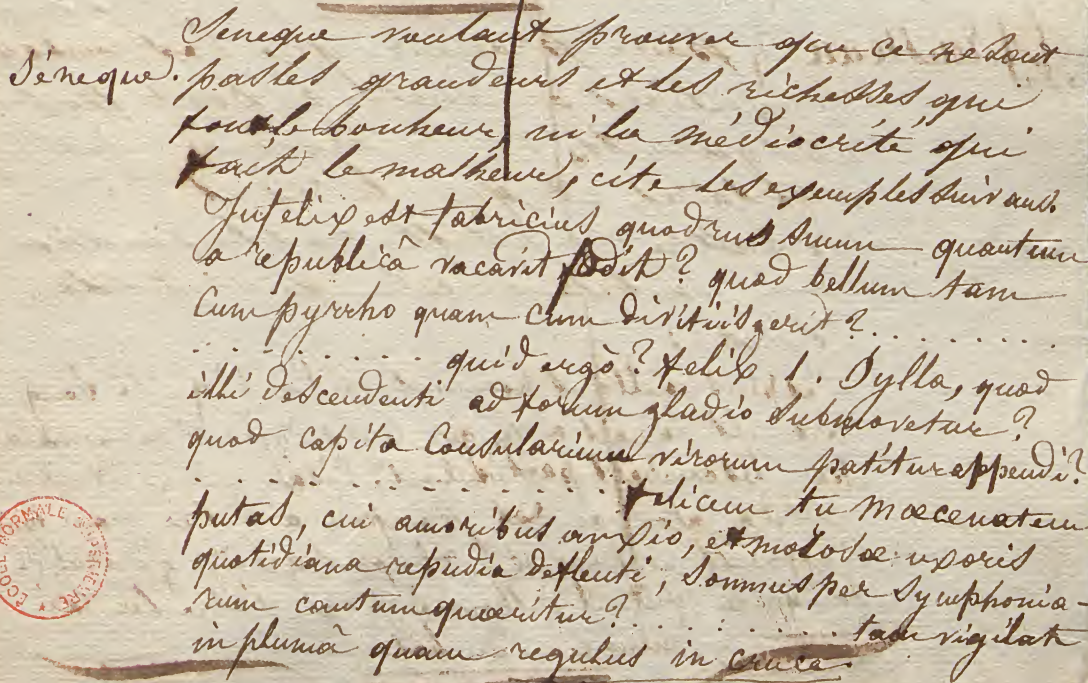 Seneque voulant prouver que ce ne sont
Séneque. pas les grandeurs et les richesses qui
font le bonheur, ni la médiocrité qui
fait le malheur, cite les exemples suivans.
Infelix est fabricius, quod rus suum quantum
a republicâ vacavit fodit? quod bellum tam
cum pyrrho quam cum divitiis gerit?
. . . . . . . . . . quid ergò? felix l. Sylla, quod
illi descendenti ad forum gladio submovetur?
quod capita Consularium virorum patitur appendi?
. . . . . . . . . . felicem tu Moecenatem
putas, cui amoribus anxio, et morosoe uxoris
quotidiana repudia deflenti, Somnus per Symphonia-
rum cantum quoeritur? . . . . . . . . . . tam vigilat
in plumâ quam regulus in cruce.
ECOLE NORMALE SUPERIEURE